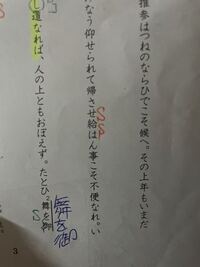 推参はつねのならひでこそ候へ。その上年もいまだ
なう仰せられて帰させ給はん事こそ不便なれ。い
道なれば、人の上ともおぼえず。たとひ舞を御
舞を御
S
S
S
3